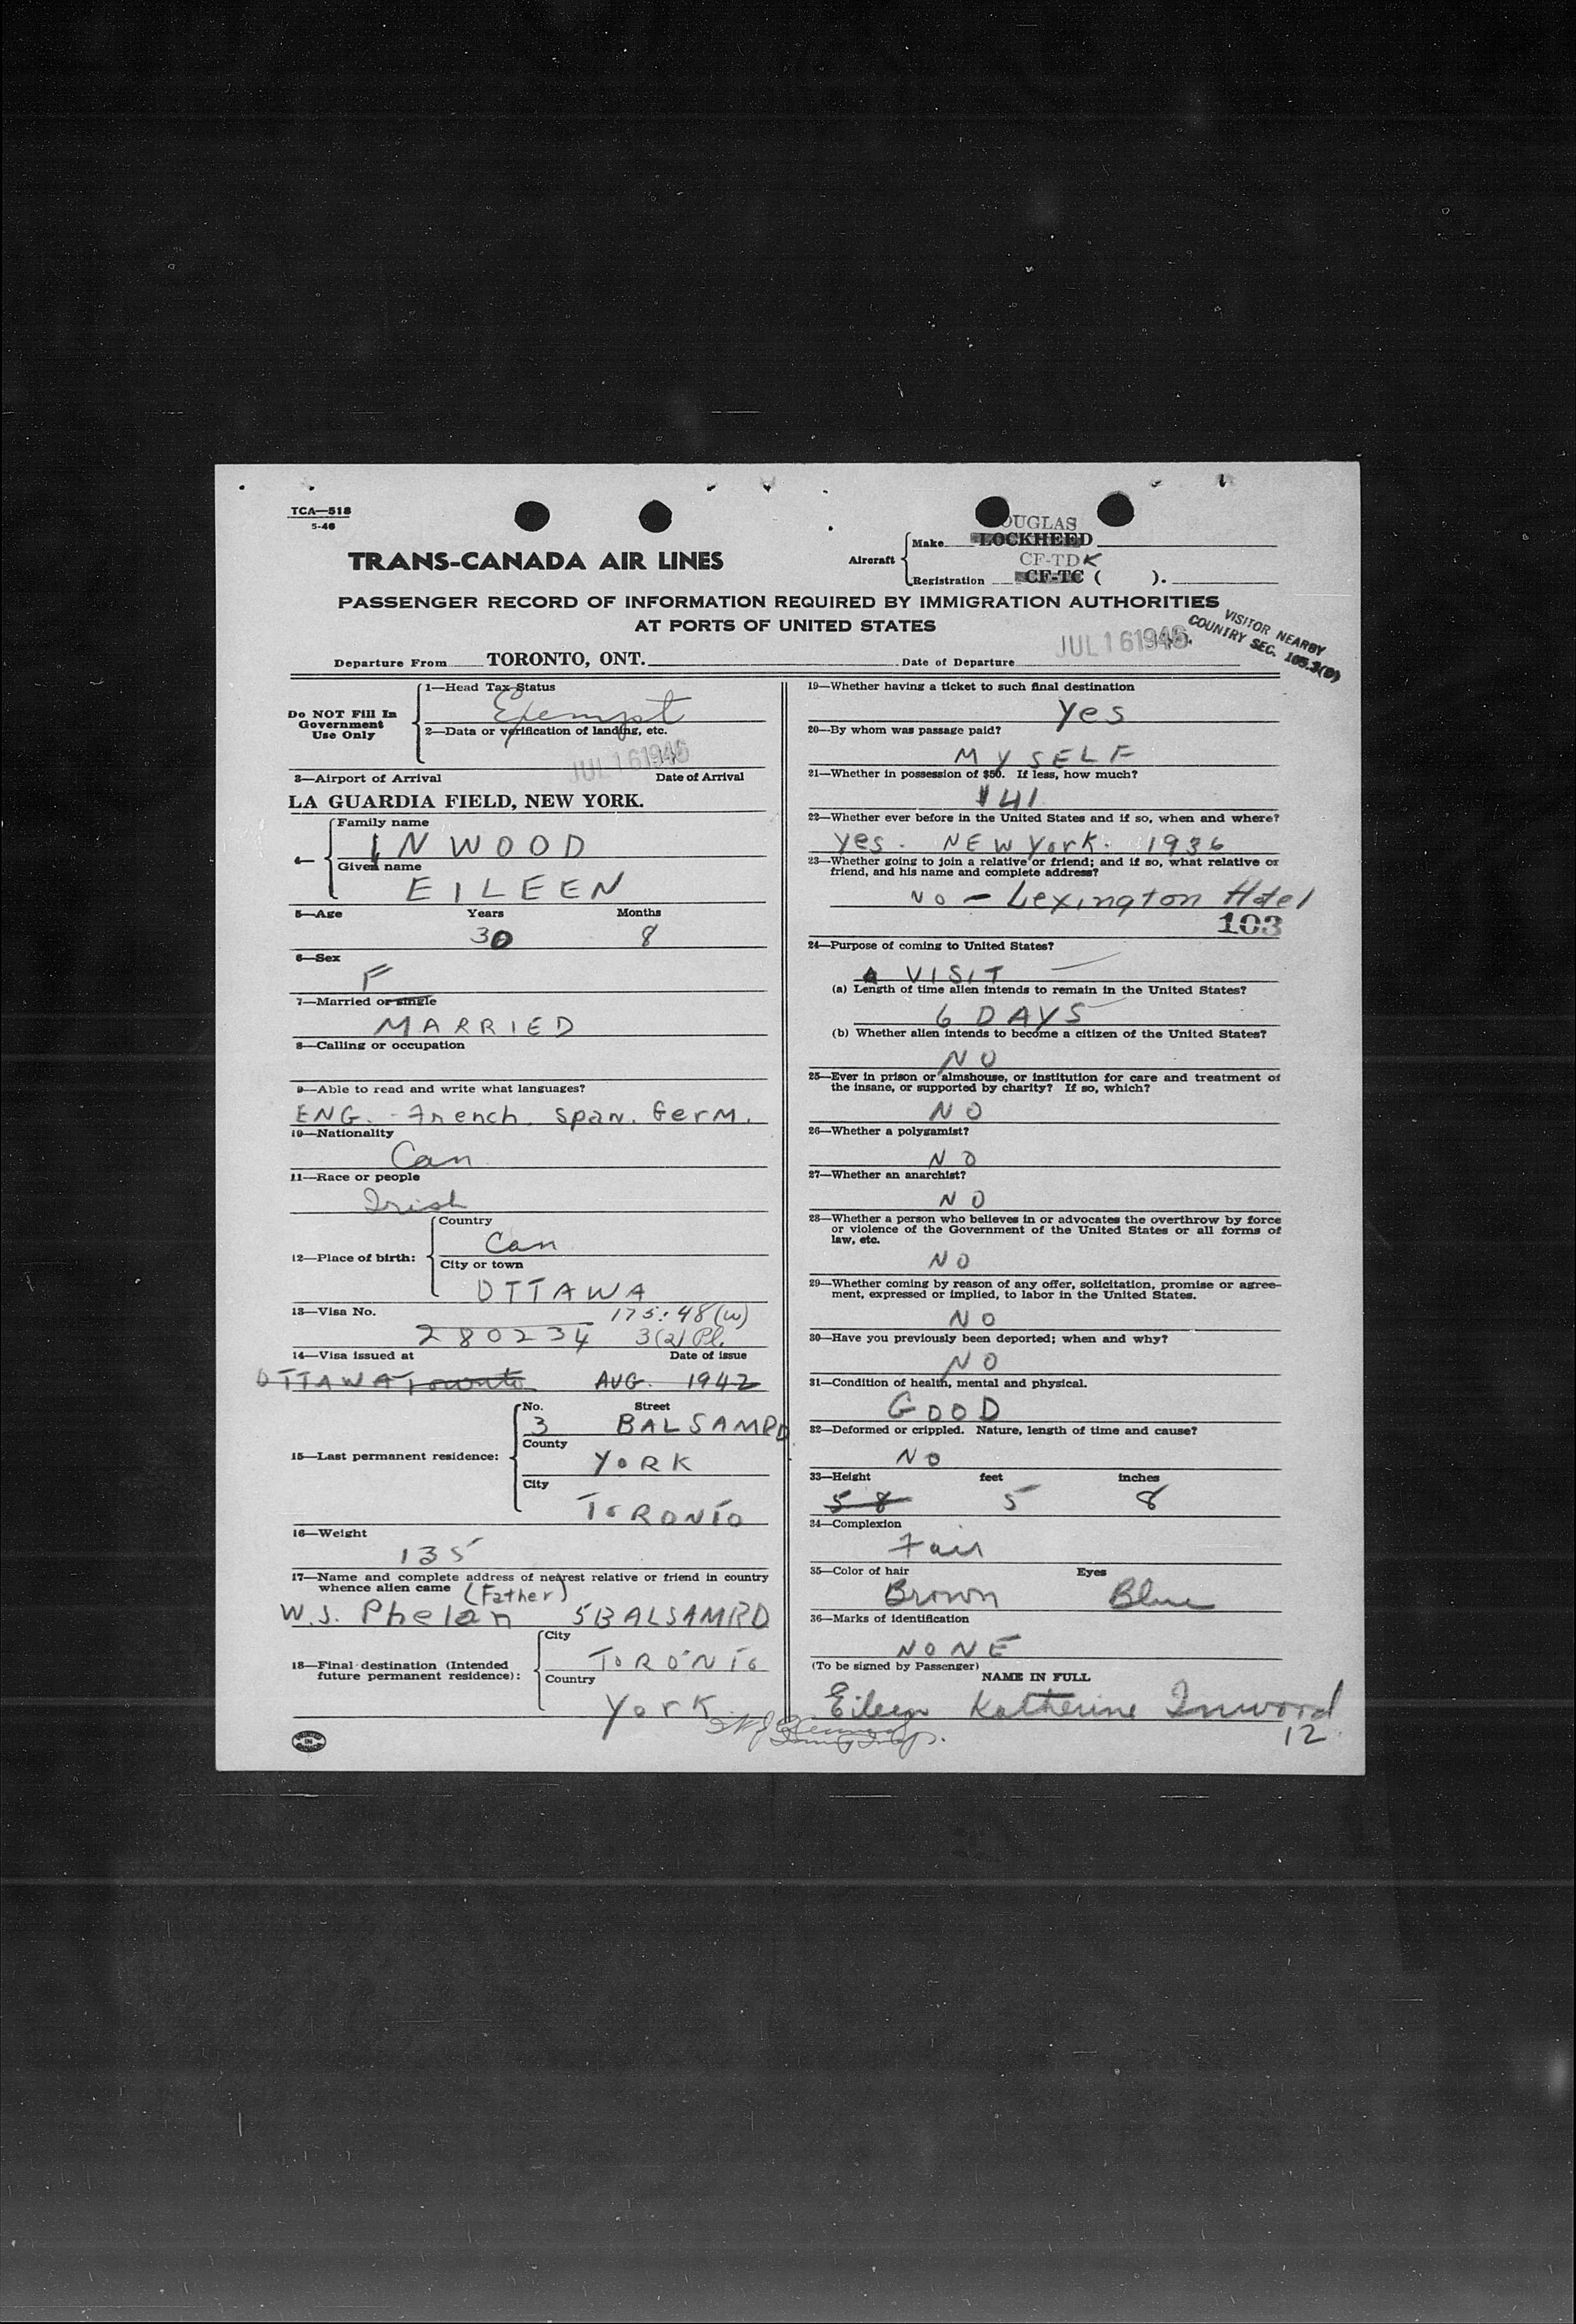 TCA—518
5-46
TRANS-CANADA AIR LINES
Aircraft
OUGLAS
Make LOCKHEED
CF-TDK
Registration CF-TC ( ).
PASSENGER RECORD OF INFORMATION REQUIRED BY IMMIGRATION AUTHORITIES
AT PORTS OF UNITED STATES
VISITOR NEARBY
COUNTRY SEC. 105.3(D)
Departure From TORONTO, ONT. Date of Departure JUL 16 1946
Do NOT Fill In
Government
Use Only
1—Head Tax Status
Exempt
2—Data or verification of landing, etc.
JUL 16 1946
3—Airport of Arrival Date of Arrival
LA GUARDIA FIELD, NEW YORK.
4—
Family name
INWOOD
Given name
EILEEN
5—Age Years Months
30 8
6—Sex
F
7—Married or single
MARRIED
8—Calling or occupation
9—Able to read and write what languages?
ENG. French. Span. Germ.
10—Nationality
Can
11—Race or people
Irish
12—Place of birth:
Country
Can
City or town
OTTAWA
13—Visa No. 175:48(W)
280234 3(2) Pl.
14—Visa issued at Date of issue
OTTAWA Toronto AUG. 1942
15—Last permanent residence:
No. Street
3 BALSAM RD
County
YORK
City
TORONTO
16—Weight
135
17—Name and complete address of nearest relative or friend in country
whence alien came (Father)
W.J. Phelan 5 BALSAM RD
18—Final destination (Intended
future permanent residence):
City
TORONTO
Country
York
PRINTED
IN
CANADA
19—Whether having a ticket to such final destination
Yes
20—By whom was passage paid?
MYSELF
21—Whether in possession of $50. If less, how much?
$41
22—Whether ever before in the United States and if so, when and where?
Yes. NEW York. 1936
23—Whether going to join a relative or friend; and if so, what relative or
friend, and his name and complete address?
NO - Lexington Hotel
103
24—Purpose of coming to United States?
A VISIT
(a) Length of time alien intends to remain in the United States?
6 DAYS
(b) Whether alien intends to become a citizen of the United States?
NO
25—Ever in prison or almshouse, or institution for care and treatment of
the insane, or supported by charity? If so, which?
NO
26—Whether a polygamist?
NO
27—Whether an anarchist?
NO
28—Whether a person who believes in or advocates the overthrow by force
or violence of the Government of the United States or all forms of
law, etc.
NO
29—Whether coming by reason of any offer, solicitation, promise or agree-
ment, expressed or implied, to labor in the United States.
NO
30—Have you previously been deported; when and why?
NO
31—Condition of health, mental and physical.
GOOD
32—Deformed or crippled. Nature, length of time and cause?
NO
33—Height feet inches
5 8 5 8
34—Complexion
Fair
35—Color of hair Eyes
Brown Blue
36—Marks of identification
NONE
(To be signed by Passenger)
NAME IN FULL
Eileen Katherine Inwood
12